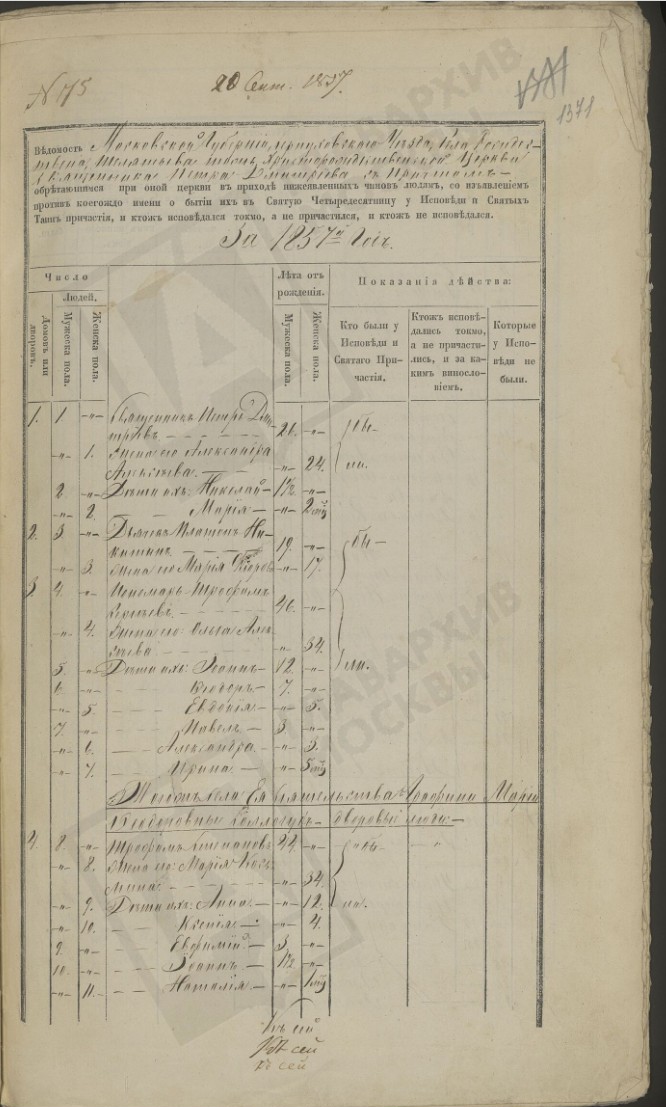 N 175
20 Сент. 1857.
1371
Вѣдомость Московской Губерніи, Серпуховскаго Уѣзда, Села Рождес-
твена, Телятьева тожъ, Христорождественской Церкви
Священника Петра Дмитріева съ Причтомъ
обрѣтающимся при оной церкви въ приходѣ нижеявленныхъ чиновъ людямъ, со изъявленіемъ
противъ коегождо имени о бытіи ихъ въ Святую Четыредесятницу у Исповѣди и Святыхъ
Таинъ причастія, и ктожъ исповѣдался токмо, а не причастился, и ктожъ не исповѣдался.
За 1857й Годъ.
Число
Людей.
Домовъ или дворовъ.
Мужеска пола.
Женска пола.
Лѣта отъ рожденія.
Мужеска пола.
Женска пола.
Показанія дѣйства:
Кто были у Исповѣди и Святаго Причастія.
Ктожъ исповѣдались токмо, а не причастились, и за какимъ винословіемъ.
Которые у Исповѣди не были.
1. 1 -„- Священникъ Петръ Дми-
тріевъ 26. -„- бы-
-„- 1. Жена его Александра
Алексѣева -„- 24. ли.
2. -„- Дѣти ихъ: Николай 1½ -„-
-„- 2. Марія -„- 2 мѣ
2. 3. -„- Дьячекъ Платонъ Ни-
китинъ 19. -„- бы-
-„- 3. Жена его Марія Ѳедоров -„- 17.
3. 4. -„- Пономарь Трофимъ
46. -„-
-„- 4. Жена его: Ольга Алек-
сѣева -„- 34.
5. -„- Дѣти ихъ: Іоаннъ 12. -„- ли.
6. -„- Ѳеодоръ 7. -„-
-„- 5. Евдокія -„- 5.
7. -„- Павелъ 3 -„-
-„- 6. Александра -„- 3.
-„- 7. Ирина -„- 5 мѣ
Тогожъ села Ея Сіятельства Графини Маріи
Ѳеодоровны Соллогубъ дворовые люди:
4. 8. -„- Трофимъ Степановъ 44. -„- бы-
-„- 8. Жена его: Марія Козь-
мина -„- 34.
-„- 9. Дѣти ихъ: Анна -„- 12. ли.
-„- 10. Ксенія -„- 4.
9. -„- Евфимій 3. -„-
10. -„- Іоаннъ 1½ -„-
-„- 11. Наталія -„- 1 мѣ